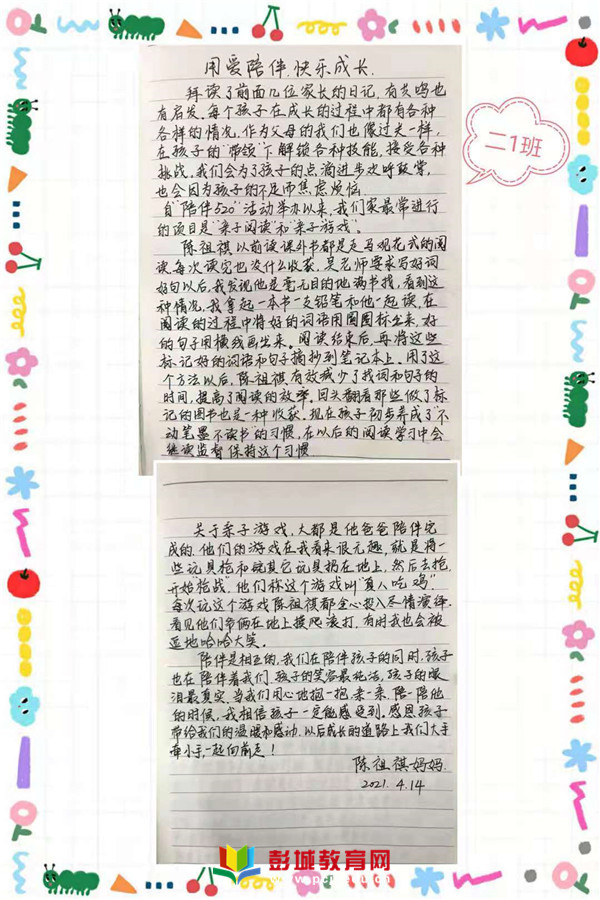 用爱陪伴,快乐成长.
拜读了前面几位家长的日记,有共鸣也
有启发。每个孩子在成长的过程中都有各种
各样的情况,作为父母的我们也像过关一样,
在孩子的"带领"下解锁各种技能,接受各种
挑战。我们会为了孩子的点滴进步欢呼鼓掌,
也会因为孩子的不足而焦虑烦恼。
自"陪伴520"活动举办以来,我们家最常进行
的项目是"亲子阅读"和"亲子游戏"。
陈祖祺以前读课外书都是走马观花式的阅
读,每次读完也没什么收获,吴老师要求写好词
好句以后,我发现他是毫无目的地满书找,看到这
种情况,我拿起一本书一支铅笔和他一起读,在
阅读的过程中将好的词语用圈圈标出来,好
的句子用横线画出来。阅读结束后,再将这些
标记好的词语和句子摘抄到笔记本上。用了这
个方法以后,陈祖祺有效减少了找词和句子的
时间,提高了阅读的效率。回头翻看那些做了标
记的图书也是一种收获。现在孩子初步养成了"不
动笔墨不读书"的习惯,在以后的阅读学习中会
继续监督保持这个习惯
二1班
关于亲子游戏,大都是他爸爸陪伴完
成的,他们的游戏在我看来很无趣,就是将一
些玩具枪和其它玩具扔在地上,然后去抢,
开始"枪战",他们称这个游戏叫"真人吃鸡"
每次玩这个游戏陈祖祺都全心投入尽情演绎,
看见他们爷俩在地上摸爬滚打,有时我也会被
逗地哈哈大笑。
陪伴是相互的,我们在陪伴孩子的同时,孩子
也在陪伴着我们,孩子的笑容最纯洁,孩子的眼
泪最真实,当我们用心地抱一抱、亲一亲、陪一陪他
的时候,我相信孩子一定能感受到。感恩孩子
带给我们的温暖和感动,以后成长的道路上我们大手
牵小手,一起向前走!
陈祖祺妈妈.
2021. 4.14
彭城教育网